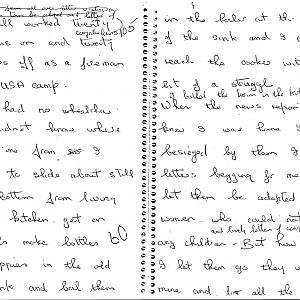 all worked twenty
as on and twenty
s off as a fireman
USA camp.
had no wheelchair
didnt know where
me from I
to slide about still
bottom from Ivory
kitchen. get on
s make bottles
appies in the old
and boil them
in the boiler at the
of the sink and I c
reach the cooker with
bit of a struggle
I boiled the
When the news repor
knew I was home I
besieged by them I
letters begging for me
let them be adopted
women who could not
any children - But how
I let them go they w
mine and for all the